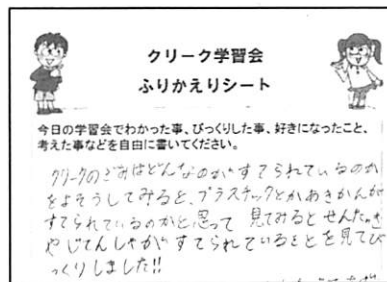 クリーク学習会
ふりかえりシート
今日の学習会でわかった事、びっくりした事、好きになったこと、
考えた事などを自由に書いてください。
クリークのごみはどんなのがすてられているのか
をよそうしてみると、プラスチックとかあきかんが
すてられているのかと思って 見てみるとせんたっき
やじてんしゃがすてられていることを見てび
っくりしました!!